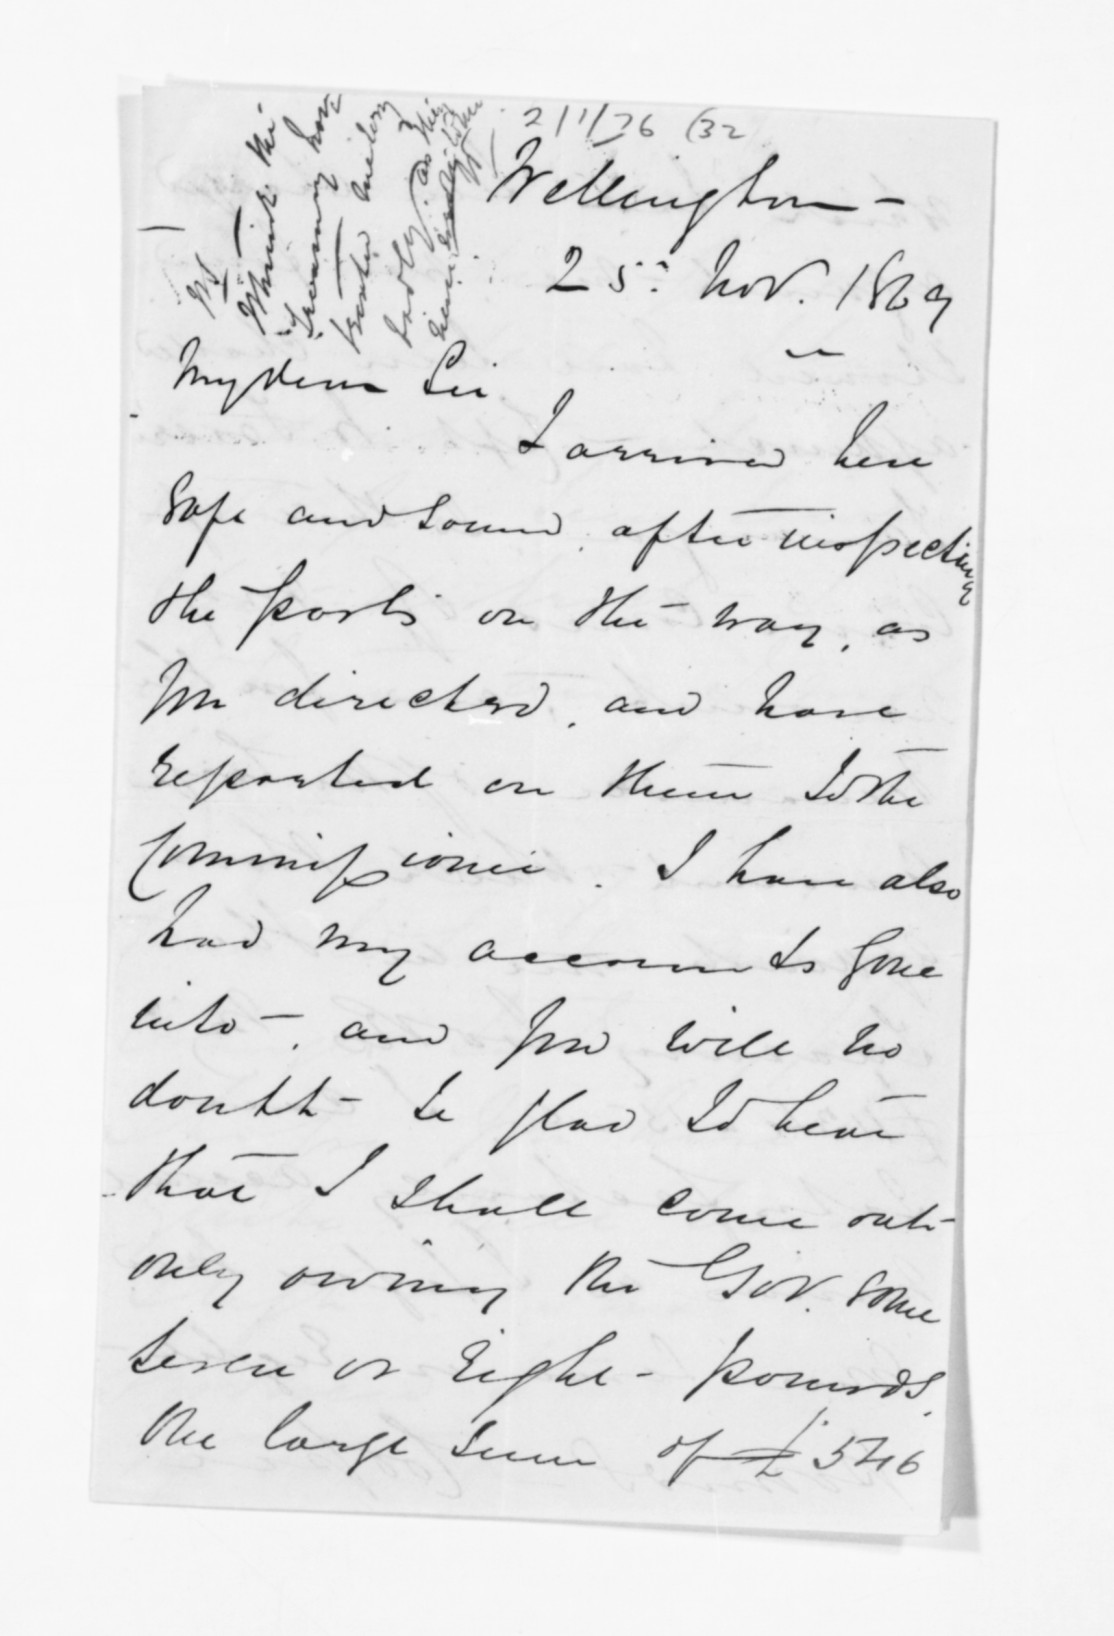 2/1/76 (32
Wellington -
25: Nov. 1869
PS
I think the
Treasury have
treated me very
badly, as they
My dear Sir
I arrived here
safe and sound, after inspecting
the posts on the way, as
you directed, and have
reported on them to the
Commissioner. I have also
had my accounts gone
into -, and you will no
doubt - be glad to hear
that I shall come out
only owing the Gov. some
seven or Eight - pounds.
the large sum of £546